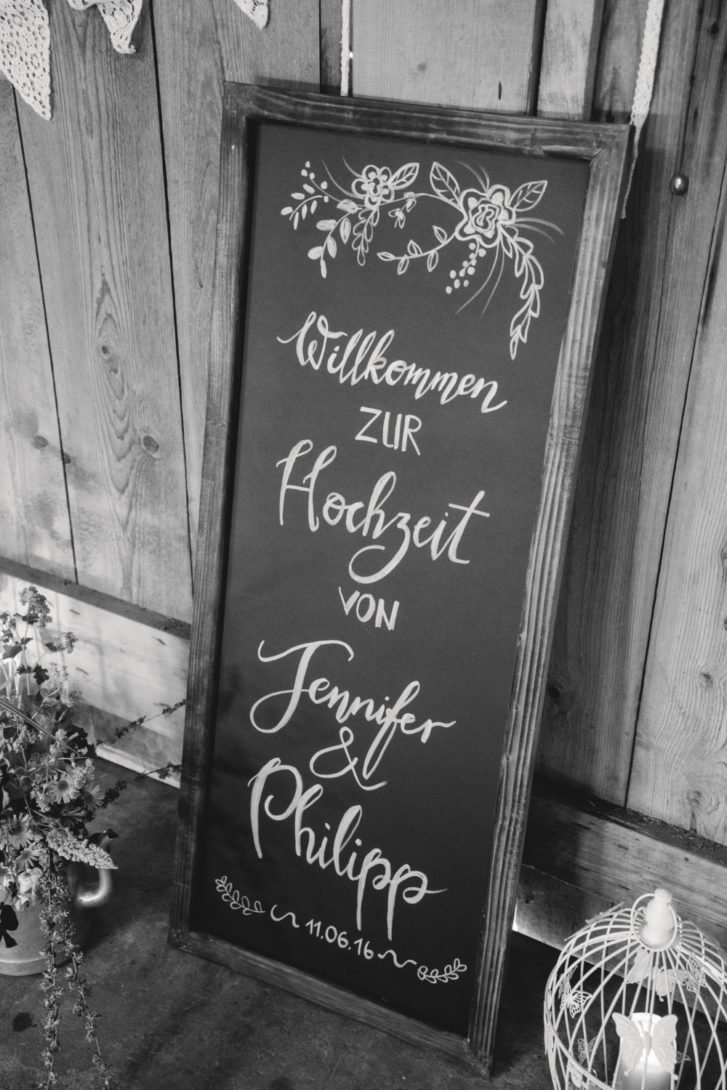 Willkommen
ZUR
Hochzeit
VON
Jennifer
&
Philipp
11.06.16